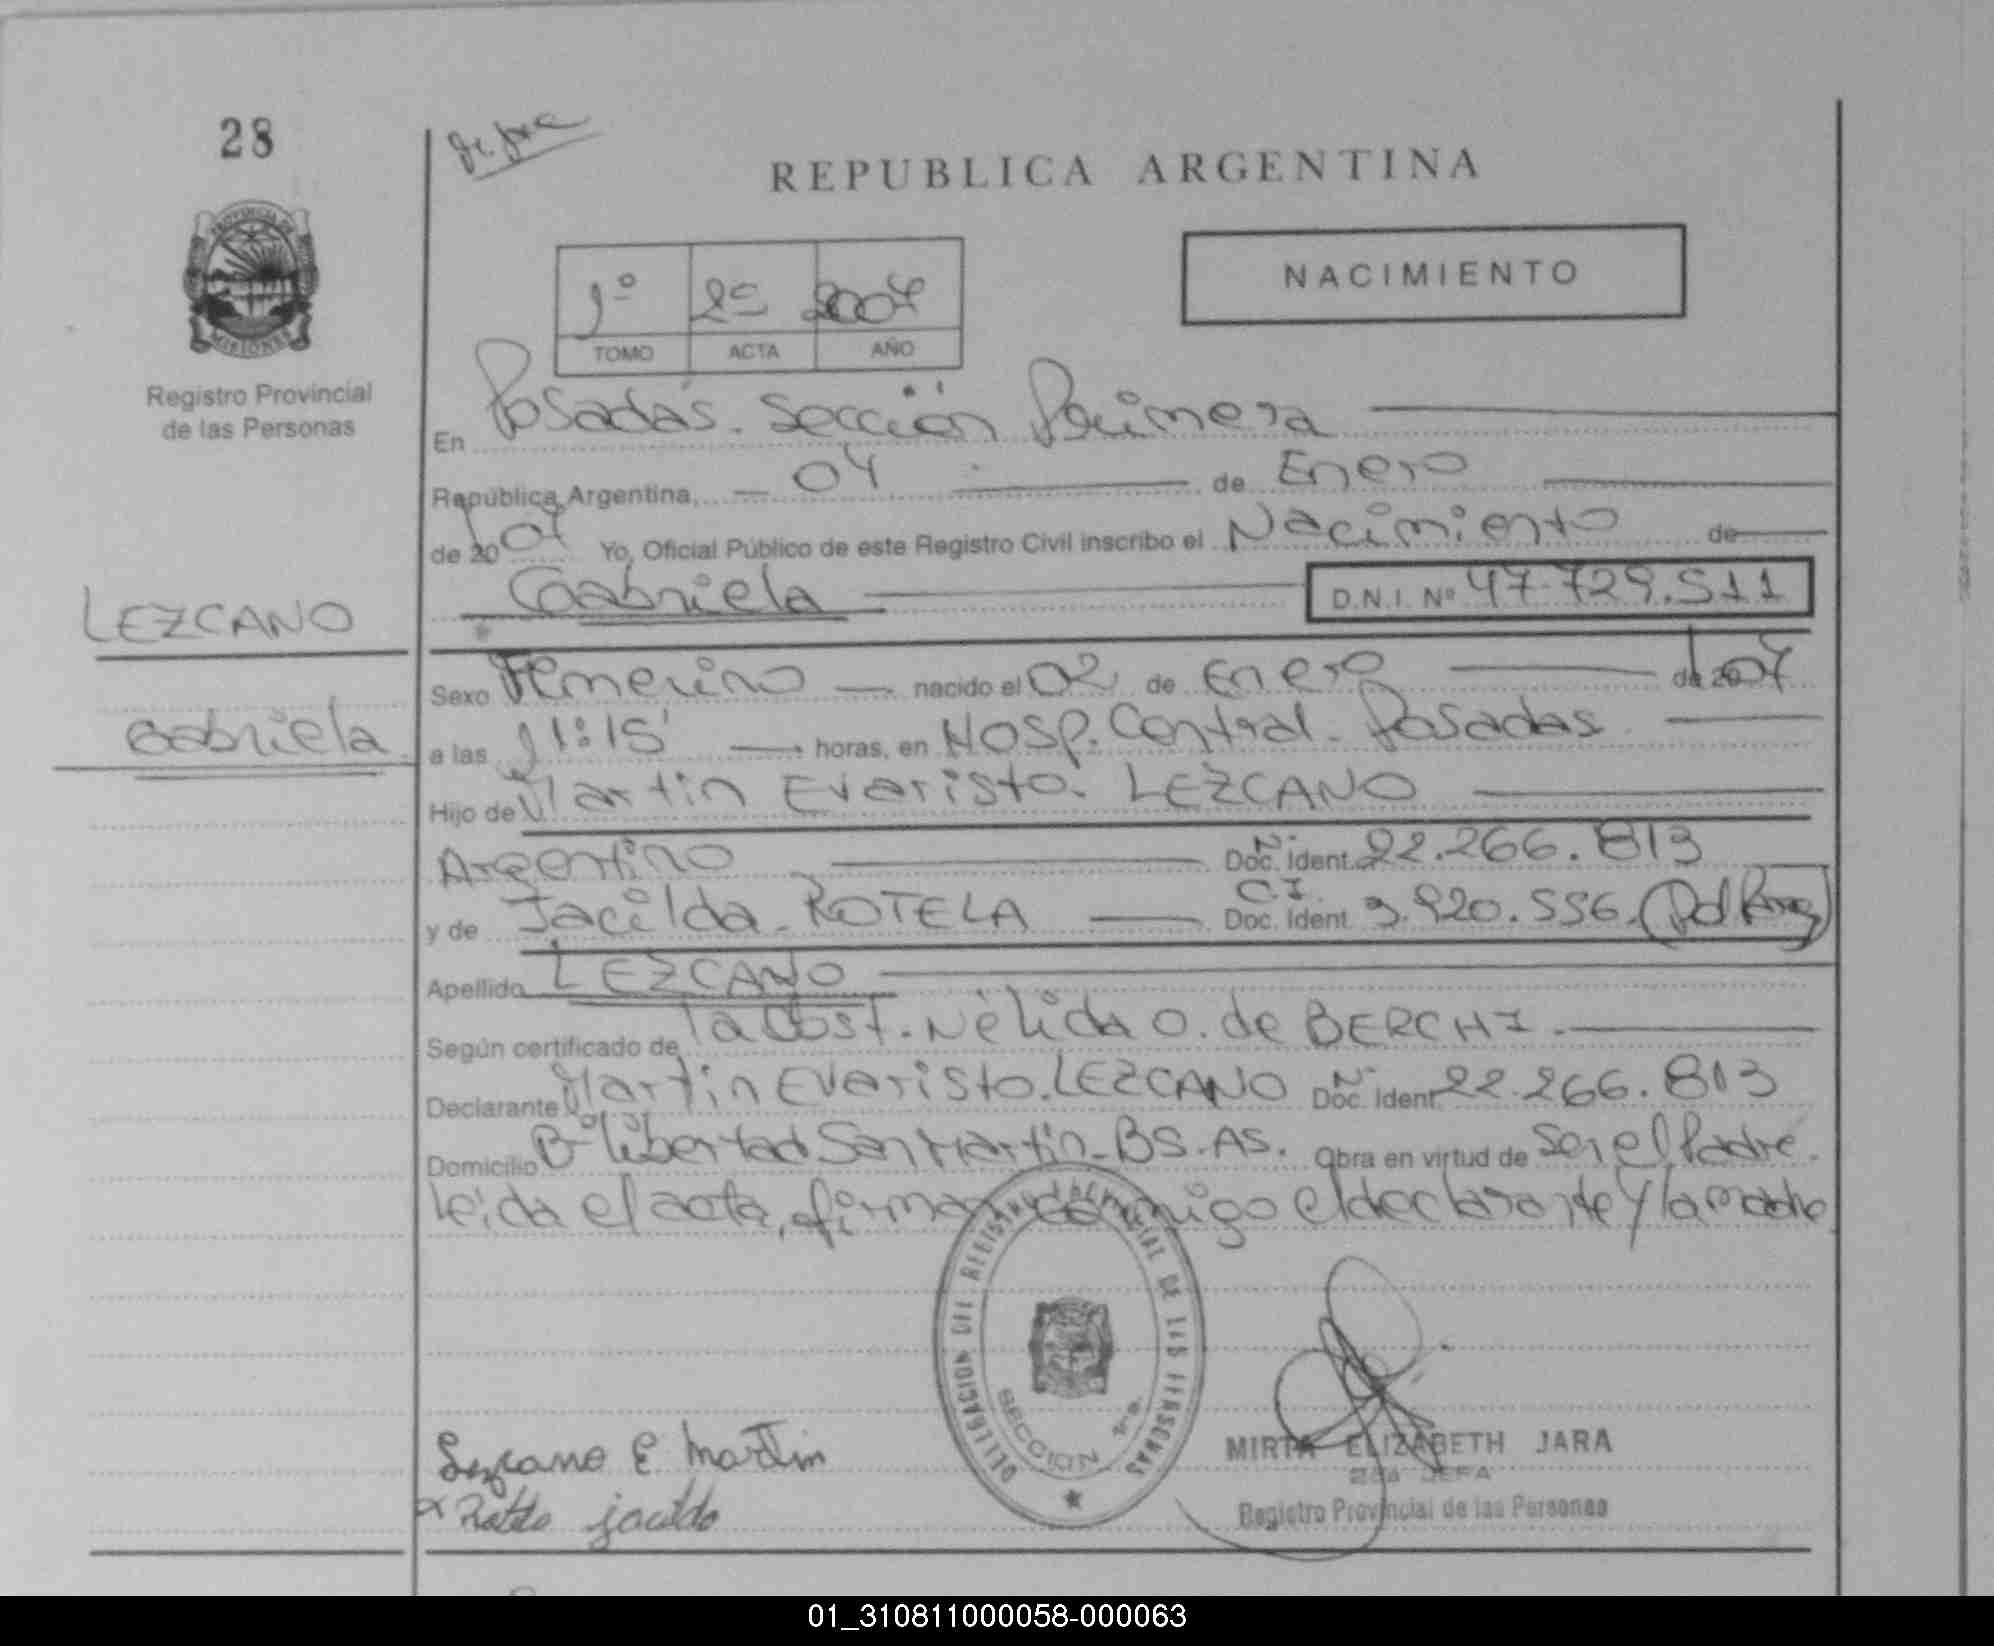 28
REPUBLICA ARGENTINA
PROVINCIA DE
MISIONES
Registro Provincial
de las Personas
1º 28 2007
TOMO ACTA AÑO
NACIMIENTO
En Posadas. Sección Primera
República Argentina, 04 de Enero
de 2007 Yo, Oficial Público de este Registro Civil inscribo el Nacimiento de
Gabriela D.N.I. Nº 47.729.511
LEZCANO
Gabriela
Sexo Femenino nacido el 02 de Enero de 2007
a las 11:15' horas, en Hosp. Central. Posadas
Hijo de Martin Evaristo. LEZCANO
Argentino Doc. Ident. 22.266.813
y de Jacilda. ROTELA C.I. Doc. Ident 3.920.556.
Apellido LEZCANO
Según certificado de la Obst. Nélida O. de BERCHI.
Declarante Martin Evaristo. LEZCANO Doc. Ident 22.266.813
Domicilio Bº Libertad San Martin_BS.AS. Obra en virtud de ser el Padre.
Leida el acta, firman conmigo el declarante y la madre
DELEGACION DEL REGISTRO PROVINCIAL DE LAS PERSONAS
SECCION 1ra.
Lezcano E Martin
MIRTA ELIZABETH JARA
2da JEFA
Registro Provincial de las Personas
01_310811000058-000063